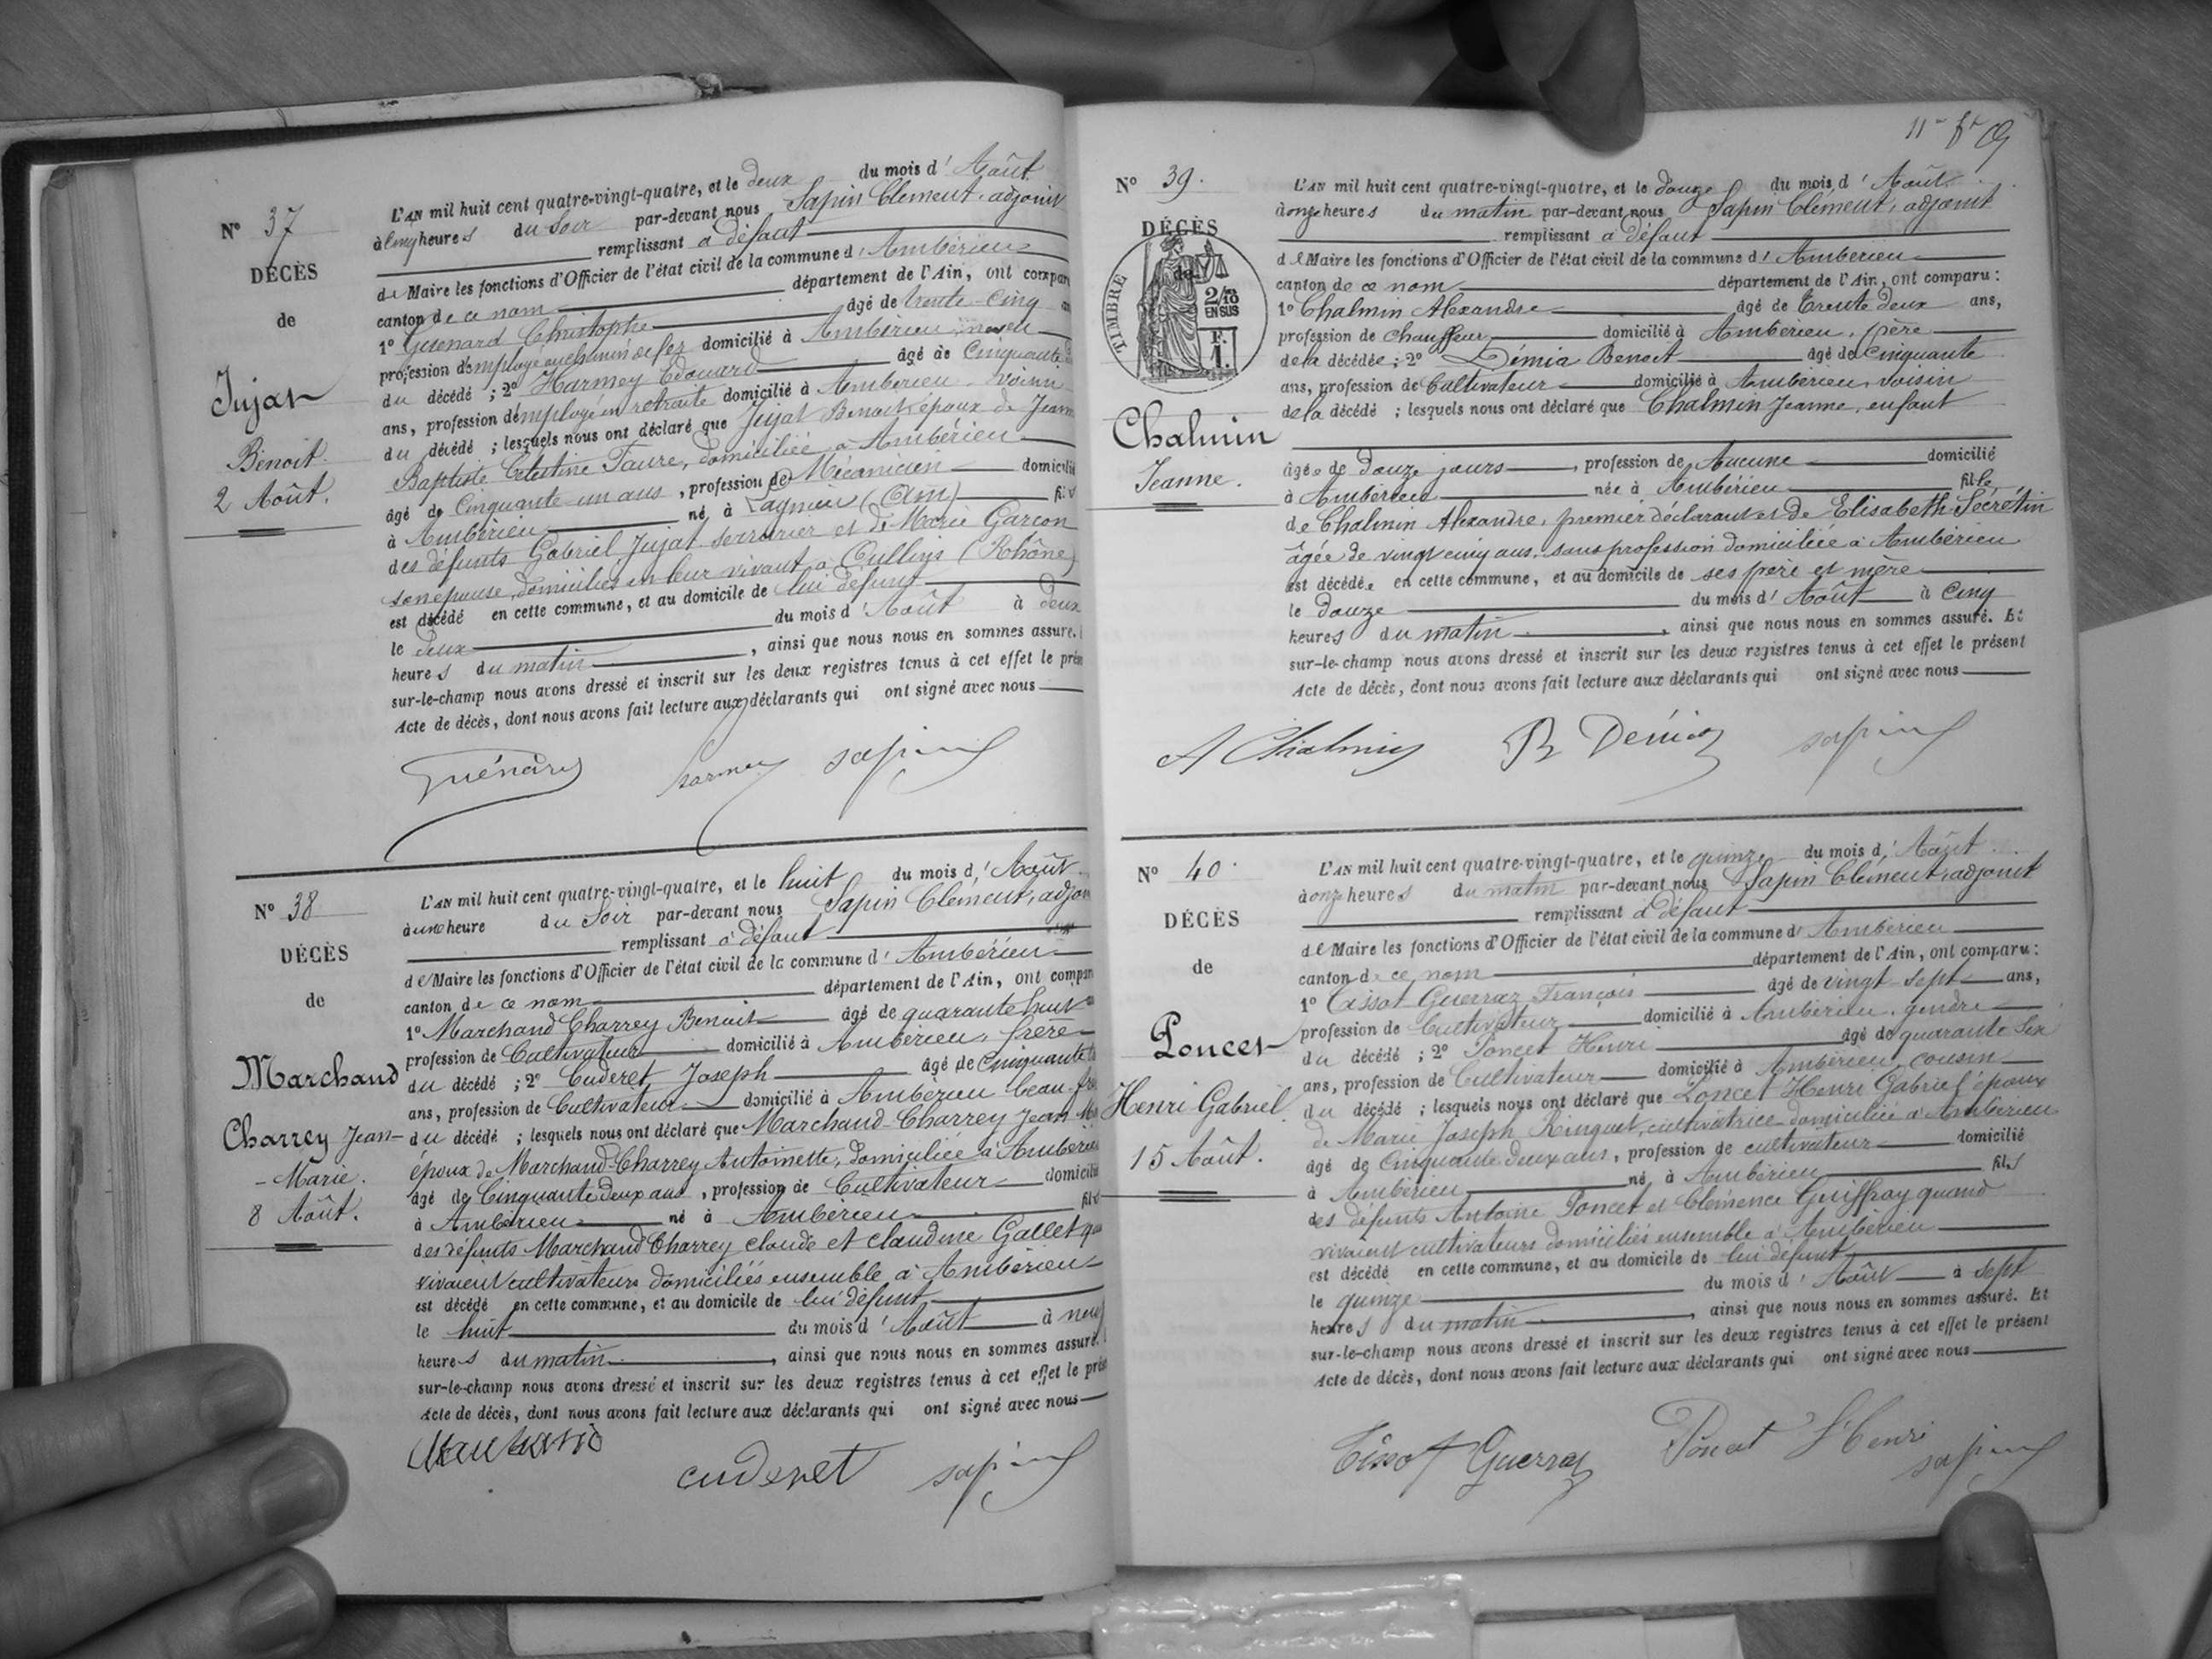 N° 37
DÉCÈS
de
Jujat
Benoit
2 Août.
L'AN mil huit cent quatre-vingt-quatre, et le deux du mois d'Août
à cinq heures du Soir par-devant nous Sapin Clément, adjoint
remplissant à défaut
de Maire les fonctions d'Officier de l'état civil de la commune d'Ambérieu
canton de ce nom département de l'Ain, ont compar
1° Guenard Christophe âgé de trente-cinq
profession d'employé au chemin de fer domicilié à Ambérieu, neveu
du décédé ; 2° Harmey Edouard âgé de Cinquante
ans, profession d'employé en retraite domicilié à Ambérieu voisin
du décédé ; lesquels nous ont déclaré que Jujat Benoit époux de Jeann
Baptiste Célestine Faure, domiciliée à Ambérieu
âgé de Cinquante-un ans, profession de Mécanicien domicilié
à Ambérieu né à Lagnieu (Ain) fils
des défunts Gabriel Jujat serrurier et de Marie Garcon
son épouse, domiciliés en leur vivant à Oullins (Rhône)
est décédé en cette commune, et au domicile de lui défunt
le deux du mois d'Août à deux
heures du matin , ainsi que nous nous en sommes assuré.
sur-le-champ nous avons dressé et inscrit sur les deux registres tenus à cet effet le prése
Acte de décès, dont nous avons fait lecture aux déclarants qui ont signé avec nous
Guénard sapin
N° 38
DÉCÈS
de
Marchand
Charrey Jean-
-Marie.
8 Août.
L'AN mil huit cent quatre-vingt-quatre, et le huit du mois d'Août
à une heure du Soir par-devant nous Sapin Clément, adjoin
remplissant à défaut
de Maire les fonctions d'Officier de l'état civil de la commune d'Ambérieu
canton de ce nom département de l'Ain, ont compar
1° Marchand Charrey Benoit âgé de quarante huit
profession de Cultivateur domicilié à Ambérieu, frère
du décédé ; 2° Cuderet Joseph âgé de Cinquante
ans, profession de Cultivateur domicilié à Ambérieu beau-frè
du décédé ; lesquels nous ont déclaré que Marchand-Charrey Jean Ma
époux de Marchand-Charrey Antoinette, domiciliée à Ambérieu
âgé de Cinquante deux ans, profession de Cultivateur domicilié
à Ambérieu né à Ambérieu fils
des défunts Marchand Charrey claude et claudine Gallet qua
vivaient cultivateurs domiciliés ensemble à Ambérieu
est décédé en cette commune, et au domicile de lui défunt
le huit du mois d'Août à neuf
heures du matin , ainsi que nous nous en sommes assuré.
sur-le-champ nous avons dressé et inscrit sur les deux registres tenus à cet effet le prése
Acte de décès, dont nous avons fait lecture aux déclarants qui ont signé avec nous
Marchand
cuderet sapin
N° 39.
DÉCÈS
de
TIMBRE
2/10
EN SUS
F.
1.
Chalmin
Jeanne.
L'AN mil huit cent quatre-vingt-quatre, et le douze du mois d'Août
à onze heures du matin par-devant nous Sapin Clément, adjoint
remplissant à défaut
de Maire les fonctions d'Officier de l'état civil de la commune d'Ambérieu
canton de ce nom département de l'Ain, ont comparu :
1° Chalmin Alexandre âgé de Trente deux ans,
profession de chauffeur domicilié à Ambérieu, père
de la décédée ; 2° Démia Benoit âgé de cinquante
ans, profession de Cultivateur domicilié à Ambérieu, voisin
de la décédé ; lesquels nous ont déclaré que Chalmin Jeanne, enfant
âgée de douze jours, profession de Aucune domicilié
à Ambérieu née à Ambérieu fille
de Chalmin Alexandre, premier déclarant et de Elisabeth Sécrétin
âgée de vingt cinq ans, sans profession domiciliée à Ambérieu
est décédée en cette commune, et au domicile de ses père et mère
le douze du mois d'Août à Cinq
heures du matin , ainsi que nous nous en sommes assuré. Et
sur-le-champ nous avons dressé et inscrit sur les deux registres tenus à cet effet le présent
Acte de décès, dont nous avons fait lecture aux déclarants qui ont signé avec nous
A Chalmin B Démia sapin
N° 40.
DÉCÈS
de
Poncet
Henri Gabriel
15 Août.
L'AN mil huit cent quatre-vingt-quatre, et le quinze du mois d'Août
à onze heures du matin par-devant nous Sapin Clément, adjoint
remplissant à défaut
de Maire les fonctions d'Officier de l'état civil de la commune d'Ambérieu
canton de ce nom département de l'Ain, ont comparu :
1° Tissot Guerraz François âgé de vingt-sept ans,
profession de Cultivateur domicilié à Ambérieu, gendre
du décédé ; 2° Poncet Henri âgé de quarante six
ans, profession de Cultivateur domicilié à Ambérieu, cousin
du décédé ; lesquels nous ont déclaré que Poncet Henri Gabriel époux
de Marie Joseph Ringuet, cultivatrice domiciliée à Ambérieu
âgé de Cinquante deux ans, profession de cultivateur domicilié
à Ambérieu né à Ambérieu fils
des défunts Antoine Poncet et Clémence Guiffray quand
vivaient cultivateurs domiciliés ensemble à Ambérieu
est décédé en cette commune, et au domicile de lui défunt
le quinze du mois d'Août à sept
heures du matin , ainsi que nous nous en sommes assuré. Et
sur-le-champ nous avons dressé et inscrit sur les deux registres tenus à cet effet le présent
Acte de décès, dont nous avons fait lecture aux déclarants qui ont signé avec nous
Tissot Guerraz Poncet Henri
sapin